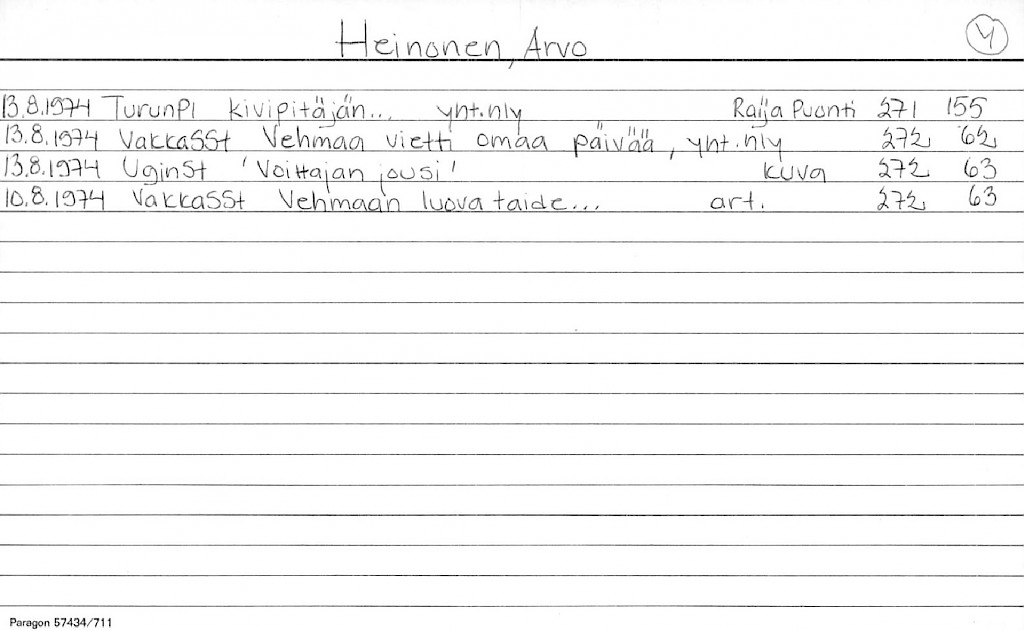 Heinonen, Arvo 4
13.8.1974 TurunPl kivipitäjän... yht.nly Raija Puonti 271 155
13.8.1974 VakkaSSt Vehmaa vietti omaa päivää, yht.nly 272 62
13.8.1974 UginSt 'Voittajan jousi' kuva 272 63
10.8.1974 VakkaSSt Vehmaan luova taide... art. 272 63
Paragon 57434/711